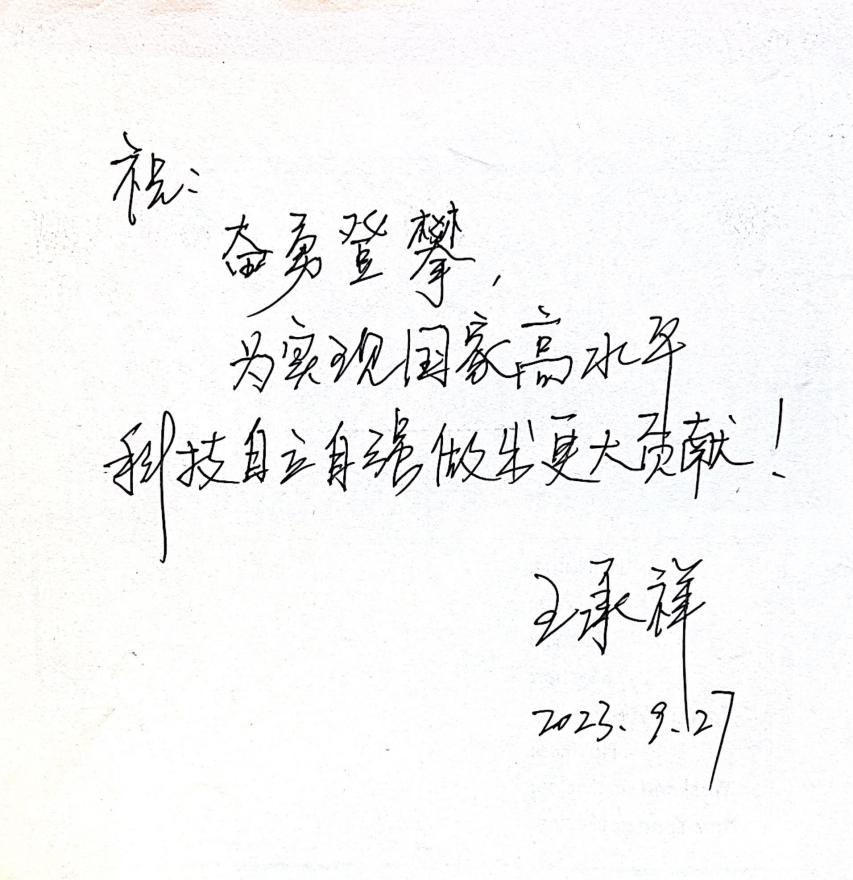 祝:
奋勇登攀,
为实现国家高水平
科技自立自强做出更大贡献!
王承祥
2023.9.27